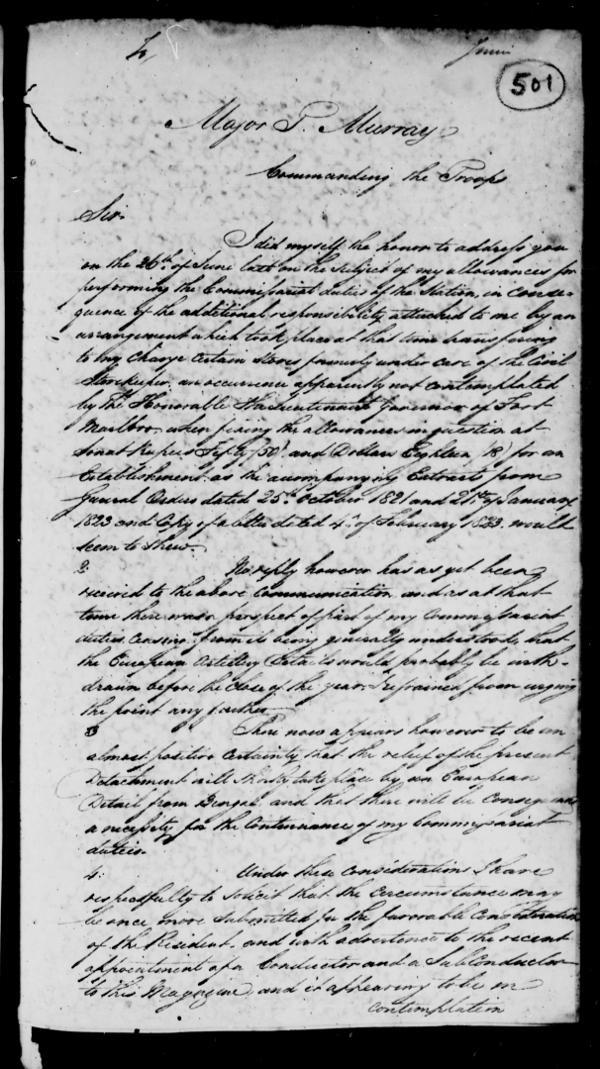 501
Major T. Murray
Commanding the Troops
Sir.
I did myself the honor to address you
on the 26th of June last on the subject of my allowances for
performing the Commissariat duties of the Station, in conse-
quence of the additional responsibility attached to me by an
arrangement which took place at that time transferring
to my Charge Certain Stores formerly under care of the Civil
Storekeeper, an occurrence apparently not contemplated
by The Honorable The Lieutenant Governor of Fort
Marlbro, when fixing the allowances in question at
Sonat Rupees Fifty (50) and Dollars Eighteen (18) for an
Establishment as the accompanying Extracts from
General Orders dated 25th October 1821 and 21st of January
1823 and Copy of a letter dated 4th of February 1823 would
seem to shew.
2. No reply however has as yet been
received to the above Communication and as at that
time there was a prospect of part of my Commissariat
duties ceasing from its being generally understood that
the European Artillery Details would probably be with-
drawn before the close of the year I refrained from urging
the point any further
3 There now appears however to be an
almost positive Certainty that the relief of the present
Detachment will shortly take place by an European
Detail from Bengal and that there will be
a necessity for the Continuance of my Commissariat
duties.
4. Under these Considerations I have
respectfully to solicit that the Circumstance may
be once more Submitted for the favorable Consideration
of the Resident, and with advertence to the recent
appointment of a Conductor and a Sub Conductor
to this Magazine, and it appearing to be in
contemplation